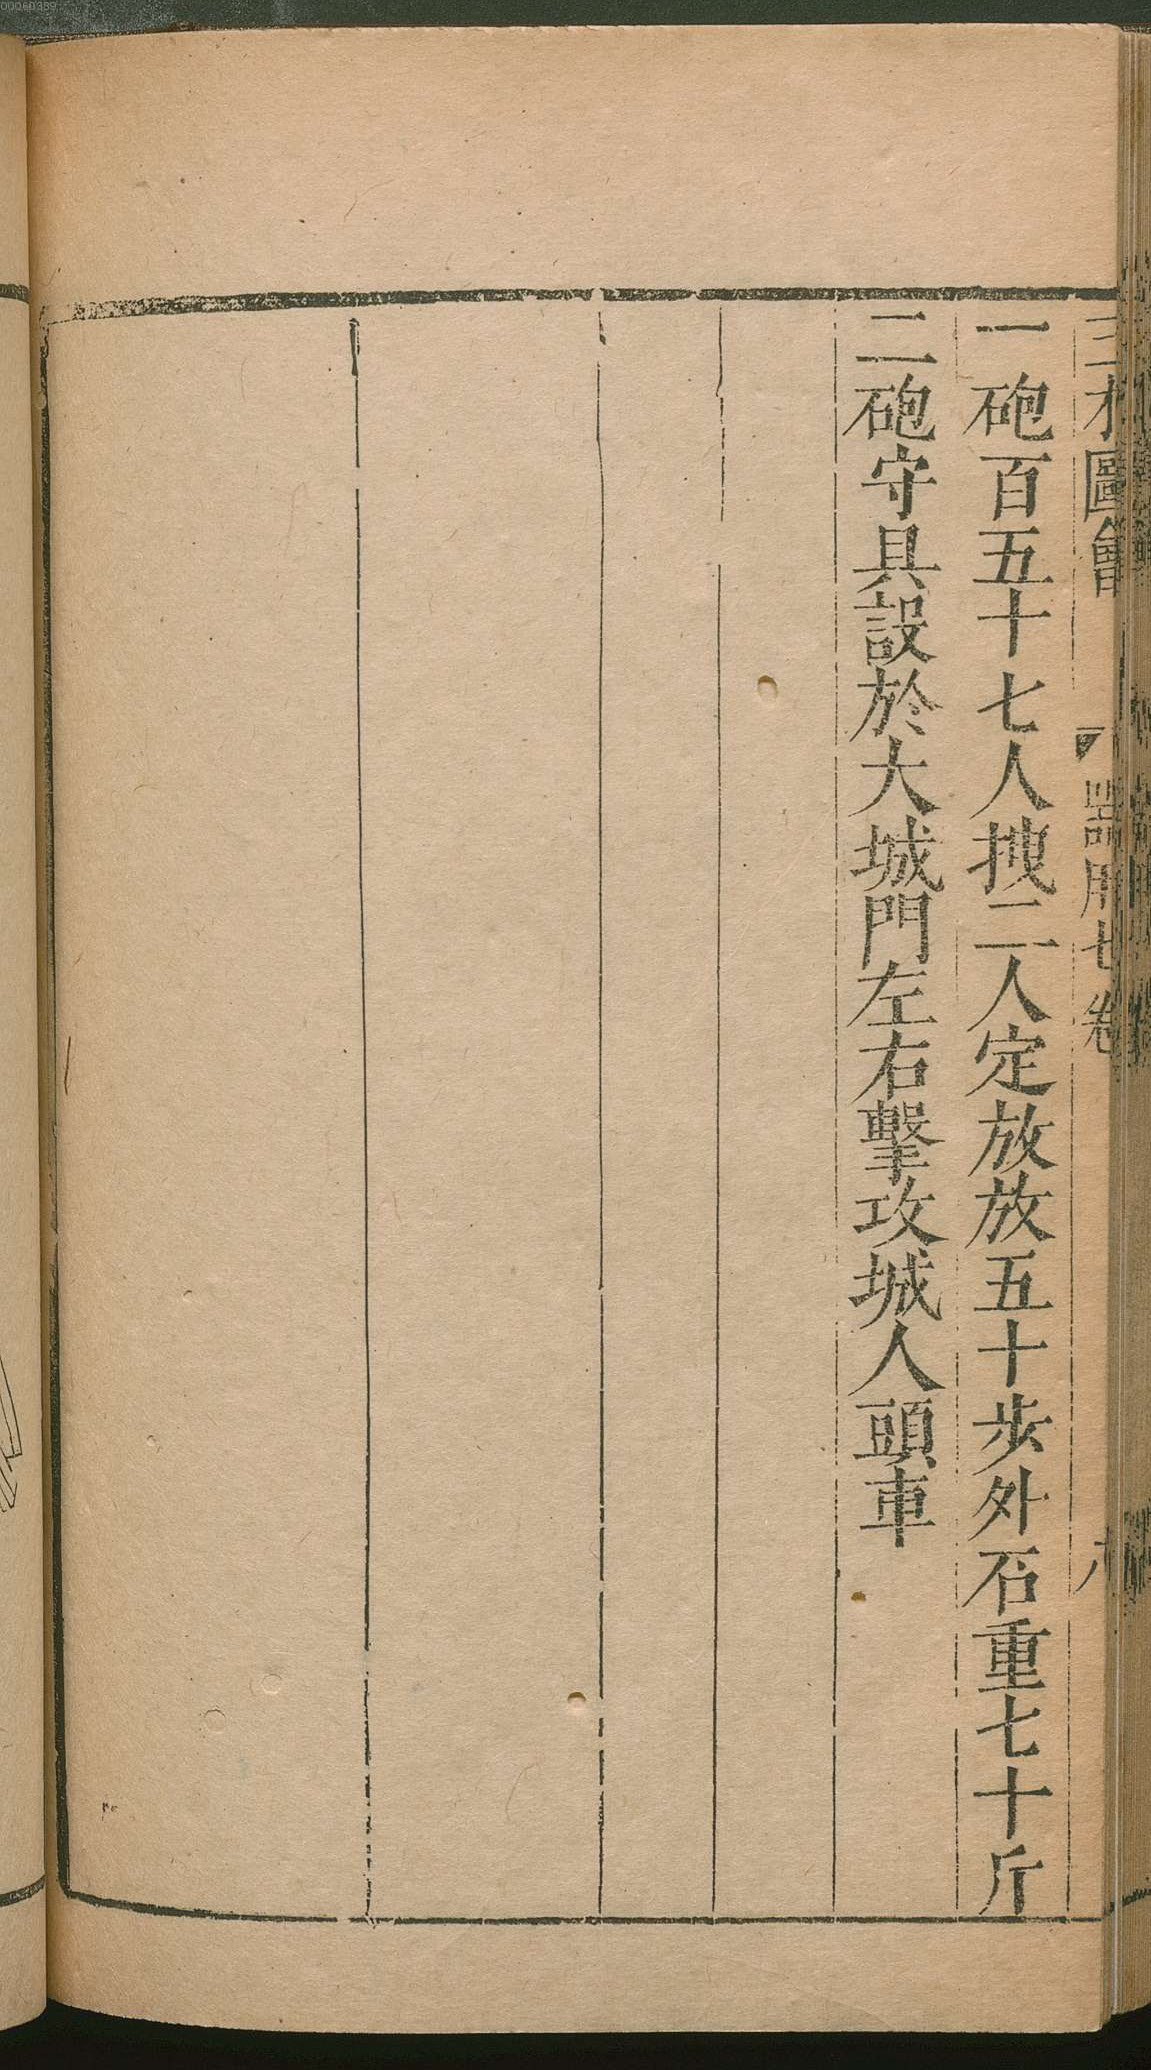 三才圖會 器用七卷
一砲百五十七人拽二人定放放五十步外石重七十斤
二砲守具設於大城門左右擊攻城人頭車
00060389